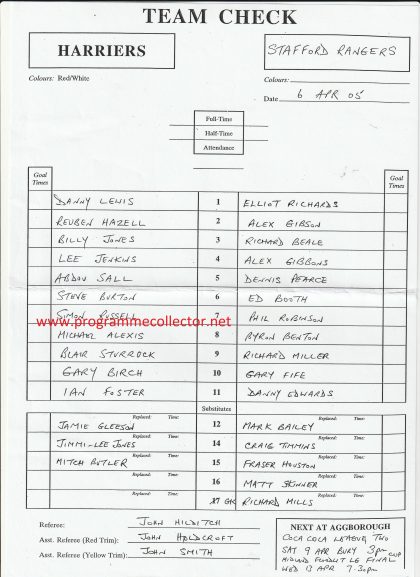 TEAM CHECK
HARRIERS
STAFFORD RANGERS
Colours: Red/White
Colours:
Date 6 APR 05
Full-Time
Half-Time
Attendance
Goal Times
Goal Times
DANNY LEWIS 1 ELLIOT RICHARDS
REUBEN HAZELL 2 ALEX GIBSON
BILLY JONES 3 RICHARD BEALE
LEE JENKINS 4 ALEX GIBBONS
ABDOU SALL 5 DENNIS PEARCE
STEVE BURTON 6 ED BOOTH
SIMON RUSSELL 7 PHIL ROBINSON
www.programmecollector.net
MICHAEL ALEXIS 8 BYRON BENTON
BLAIR STURROCK 9 RICHARD MILLER
GARY BIRCH 10 GARY FIFE
IAN FOSTER 11 DANNY EDWARDS
Substitutes
Replaced: Time: Replaced: Time:
JAMIE GLEESON 12 MARK BAILEY
Replaced: Time: Replaced: Time:
JIMMI-LEE JONES 14 CRAIG TIMMINS
Replaced: Time: Replaced: Time:
MITCH BUTLER 15 FRASER HOUSTON
Replaced: Time: Replaced: Time:
16 MATT SKINNER
Replaced: Time: Replaced: Time:
17 GK RICHARD MILLS
Referee: JOHN HILDITCH
Asst. Referee (Red Trim): JOHN HOLDCROFT
Asst. Referee (Yellow Trim): JOHN SMITH
NEXT AT AGGBOROUGH
COCA COLA LEAGUE TWO
SAT 9 APR BURY 3pm
CUP
MIDLAND FLOODLIT LE FINAL
WED 13 APR 7.30pm